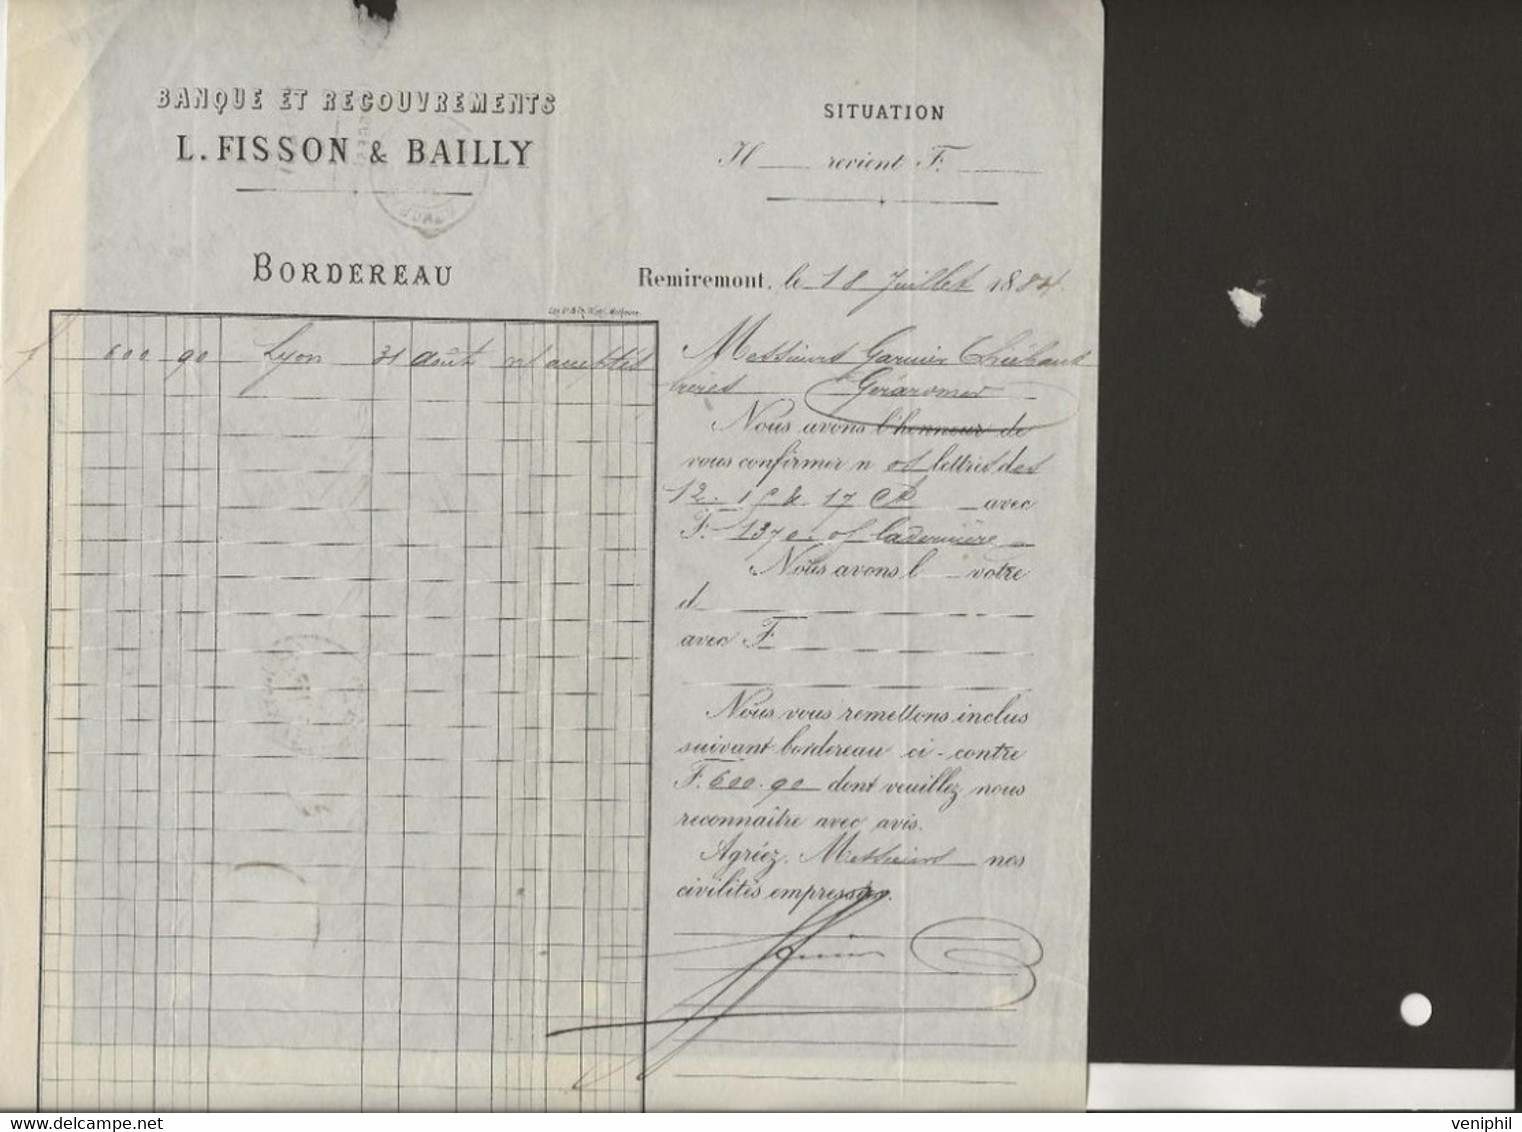 BANQUE ET RECOUVREMENTS
L. FISSON & BAILLY
BORDEREAU
600 90 Lyon 31 août
SITUATION
revient F.
Remiremont, le 18 Juillet 1884
Messieurs Garnier Thiébaut
frères Gérardmer
Nous avons l'honneur de
vous confirmer n os lettres des
12. 15 & 17 Ct avec
F. 1370. of la dernière
Nous avons l votre
d
avec F.
Nous vous remettons inclus
suivant bordereau ci-contre
F. 600.90 dont veuillez nous
reconnaître avec avis.
Agréez, Messieurs nos
civilités empressées.
veniphil